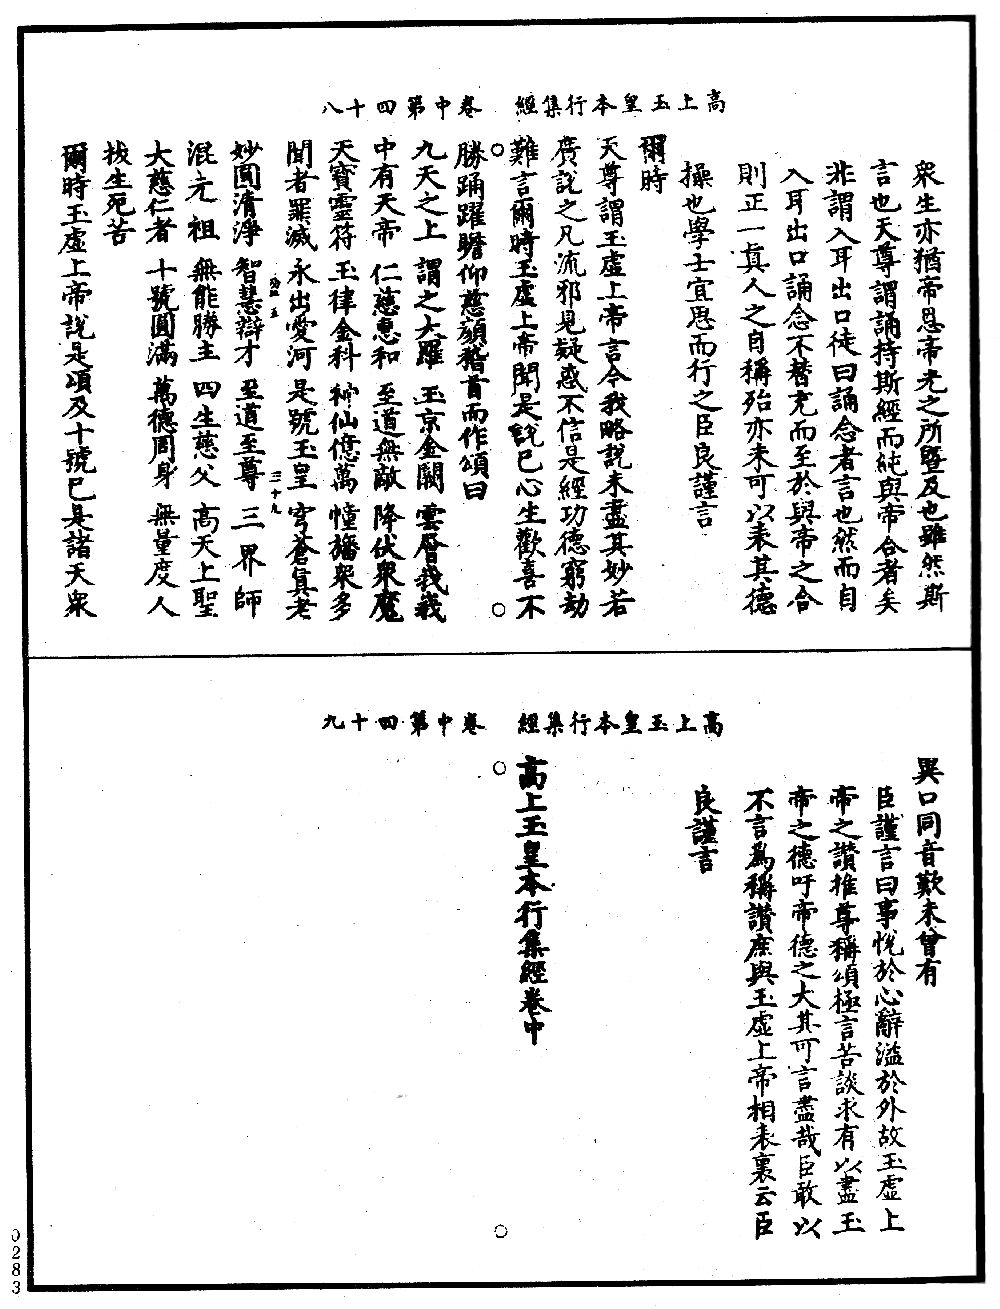 高上玉皇本行集經　卷中第四十八
衆生亦猶帝恩帝光之所曁及也雖然斯
言也天尊謂誦持斯經而純與帝合者矣
非謂入耳出口徒曰誦念者言也然而自
入耳出口誦念不替充而至於與帝之合
則正一眞人之自稱殆亦未可以表其德
操也學士宜思而行之臣良謹言
爾時
天尊謂玉虛上帝言今我略說未盡其妙若
廣說之凡流邪見疑惑不信是經功德窮劫
難言爾時玉虛上帝聞是說已心生歡喜不
勝踊躍瞻仰慈顏稽首而作頌曰
九天之上　謂之大羅　玉京金闕　雲層我我
中有天帝　仁慈惠和　至道無敵　降伏衆魔
天寶靈符　玉律金科　神仙億萬　幢旛衆多
聞者罪滅　永出愛河　是號玉皇　穹蒼眞老
三十九
妙圓清淨　智慧辯才　至道至尊　三界師
混元祖　無能勝主　四生慈父　高天上聖
大慈仁者　十號圓滿　萬德周身　無量度人
拔生死苦
爾時玉虛上帝說是頌及十號已是諸天衆
高上玉皇本行集經　卷中第四十九
異口同音歎未曾有
臣謹言曰事悅於心辭溢於外故玉虛上
帝之讃推尊稱頌極言苦談求有以盡玉
帝之德吁帝德之大其可言盡哉臣敢以
不言爲稱讃庶與玉虛上帝相表裏云臣
良謹言
高上玉皇本行集經卷中
0283